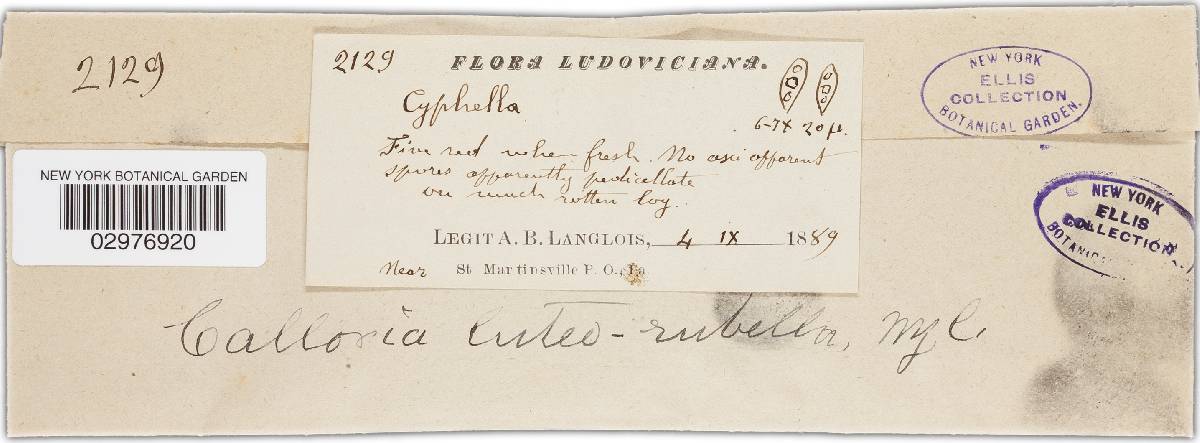 2129
2129
FLORA LUDOVICIANA.
Cyphella
6-7 X 20 µ.
Fine red when fresh. No asci apparent
spores apparently pedicellate
on much rotten log.
LEGIT A. B. LANGLOIS, 4 IX 1889
Near St Martinsville P. O., La
NEW YORK
ELLIS
COLLECTION
BOTANICAL GARDEN.
NEW YORK BOTANICAL GARDEN
02976920
NEW YORK
ELLIS
COLLECTION
BOTANICAL
Calloria luteo-rubella, Nyl.